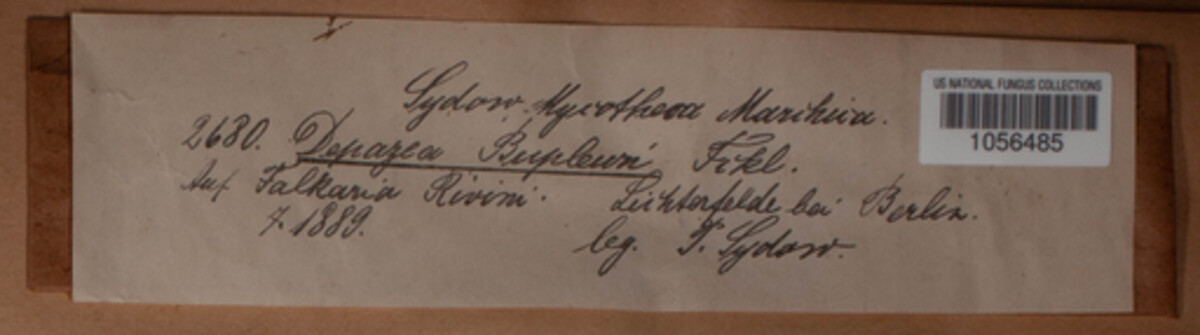 Sydow, Mycotheca Marchica.
2680. Depazea Bupleuri Fckl.
Auf Falkaria Rivini. Lichterfelde bei Berlin.
7. 1889. leg. P. Sydow.
US NATIONAL FUNGUS COLLECTIONS
1056485